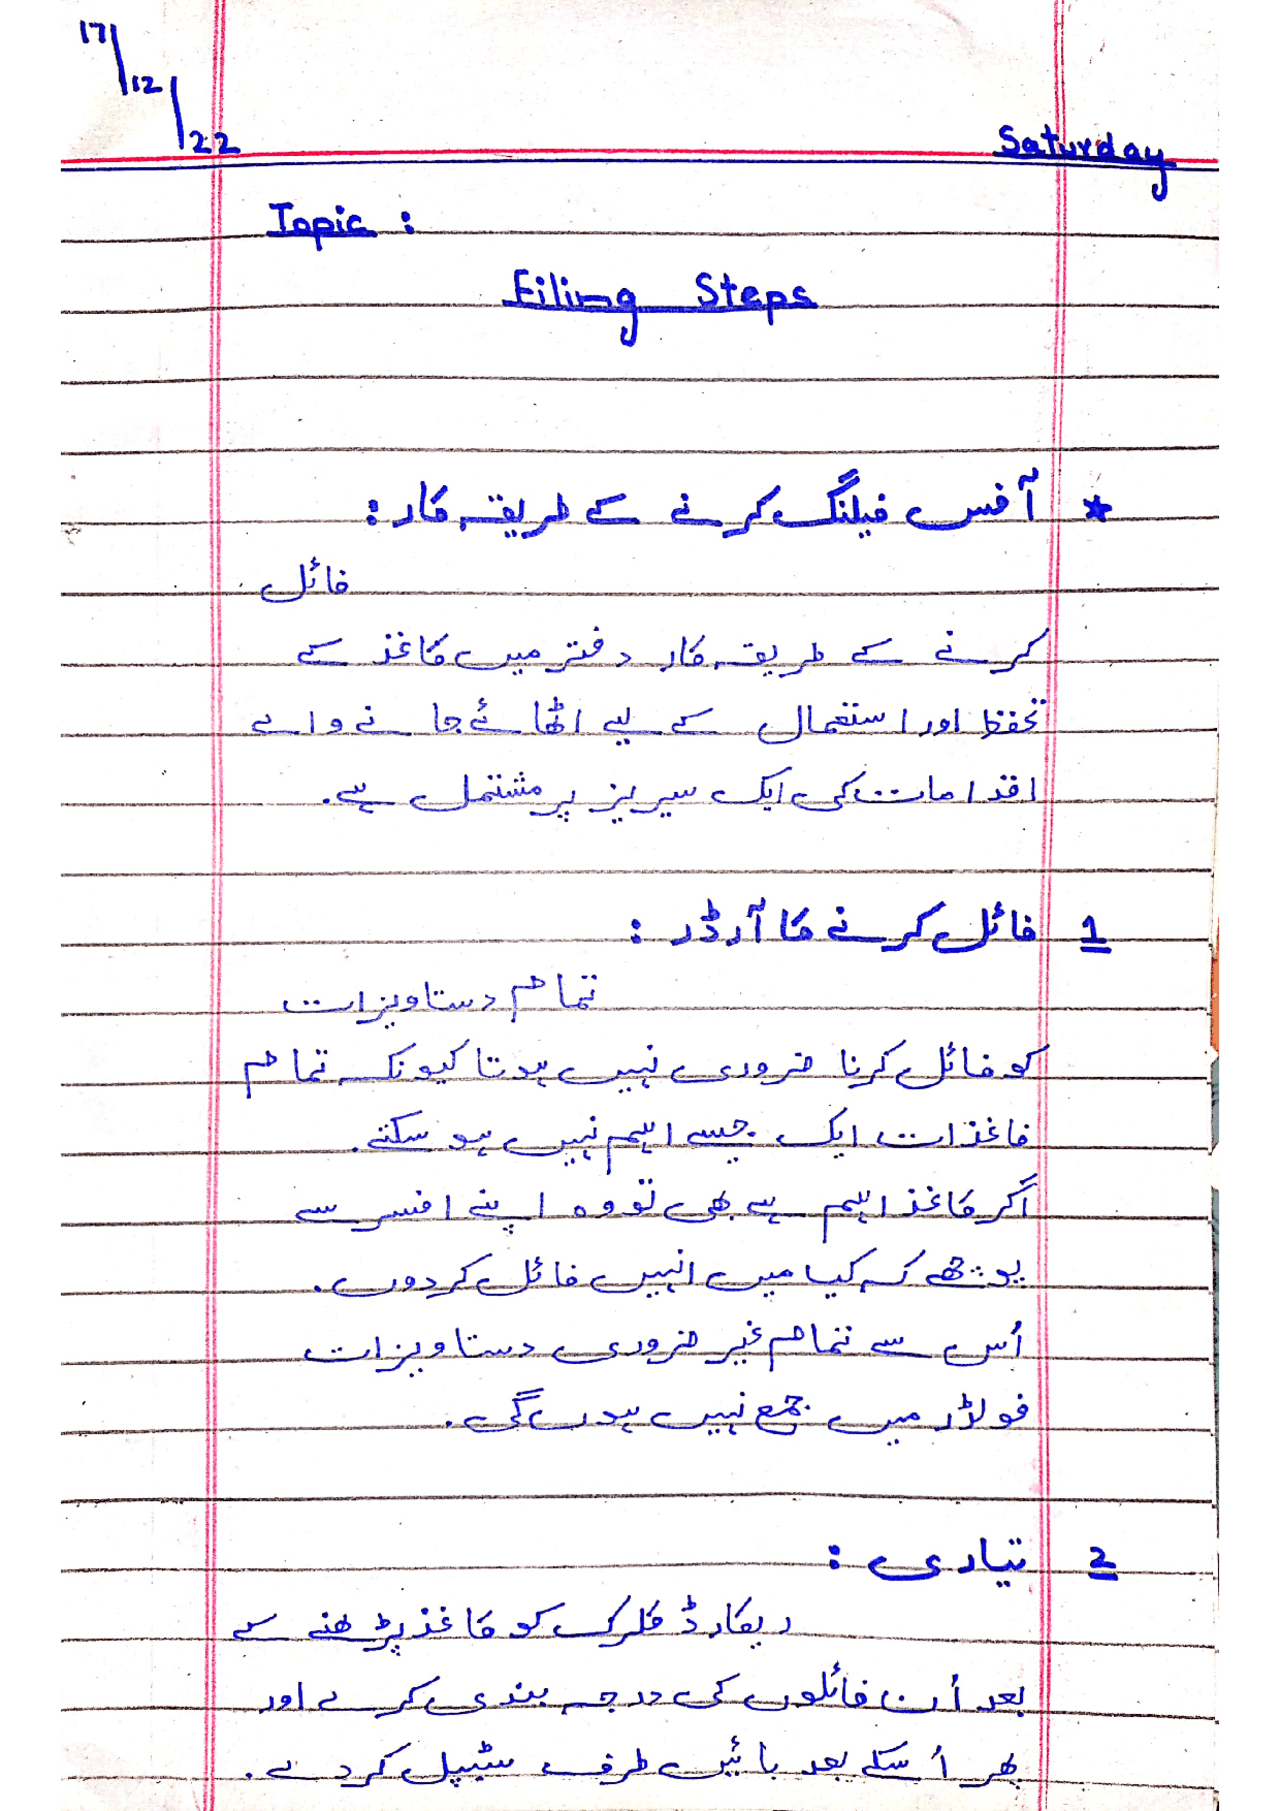 17/12/22
Saturday
Topic :
Filing Steps
* آفس فیلنگ کرنے کے طریقہ کار :
فائل
کرنے کے طریقہ کار دفتر میں کاغذ کے
تحفظ اور استعمال کے لیے اٹھائے جانے والے
اقدامات کی ایک سیریز پر مشتمل ہے۔
1 فائل کرنے کا آرڈر :
تمام دستاویزات
کو فائل کرنا ضروری نہیں ہوتا کیونکہ تمام
کاغذات ایک جیسے اہم نہیں ہو سکتے۔
اگر کاغذ اہم ہے بھی تو وہ اپنے افسر سے
پوچھے کہ کیا میں انہیں فائل کر دوں۔
اُس سے تمام غیر ضروری دستاویزات
فولڈر میں جمع نہیں ہوں گی۔
2 تیاری :
ریکارڈ کلرک کو کاغذ پڑھنے کے
بعد اُن فائلوں کی درجہ بندی کرے اور
پھر اُسکے بعد بائیں طرف سٹیپل کر دے۔